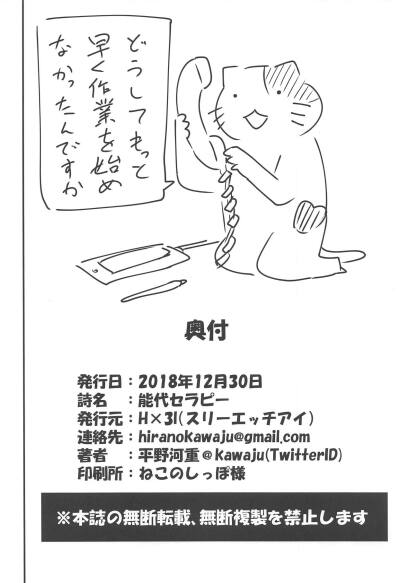 どうしてもって
早く作業を始め
なかったんですか
奥付
発行日：2018年12月30日
詩名　：能代セラピー
発行元：H×3I(スリーエッチアイ)
連絡先：hiranokawaju@gmail.com
著者　：平野河重@kawaju(TwitterID)
印刷所：ねこのしっぽ様
※本誌の無断転載、無断複製を禁止します